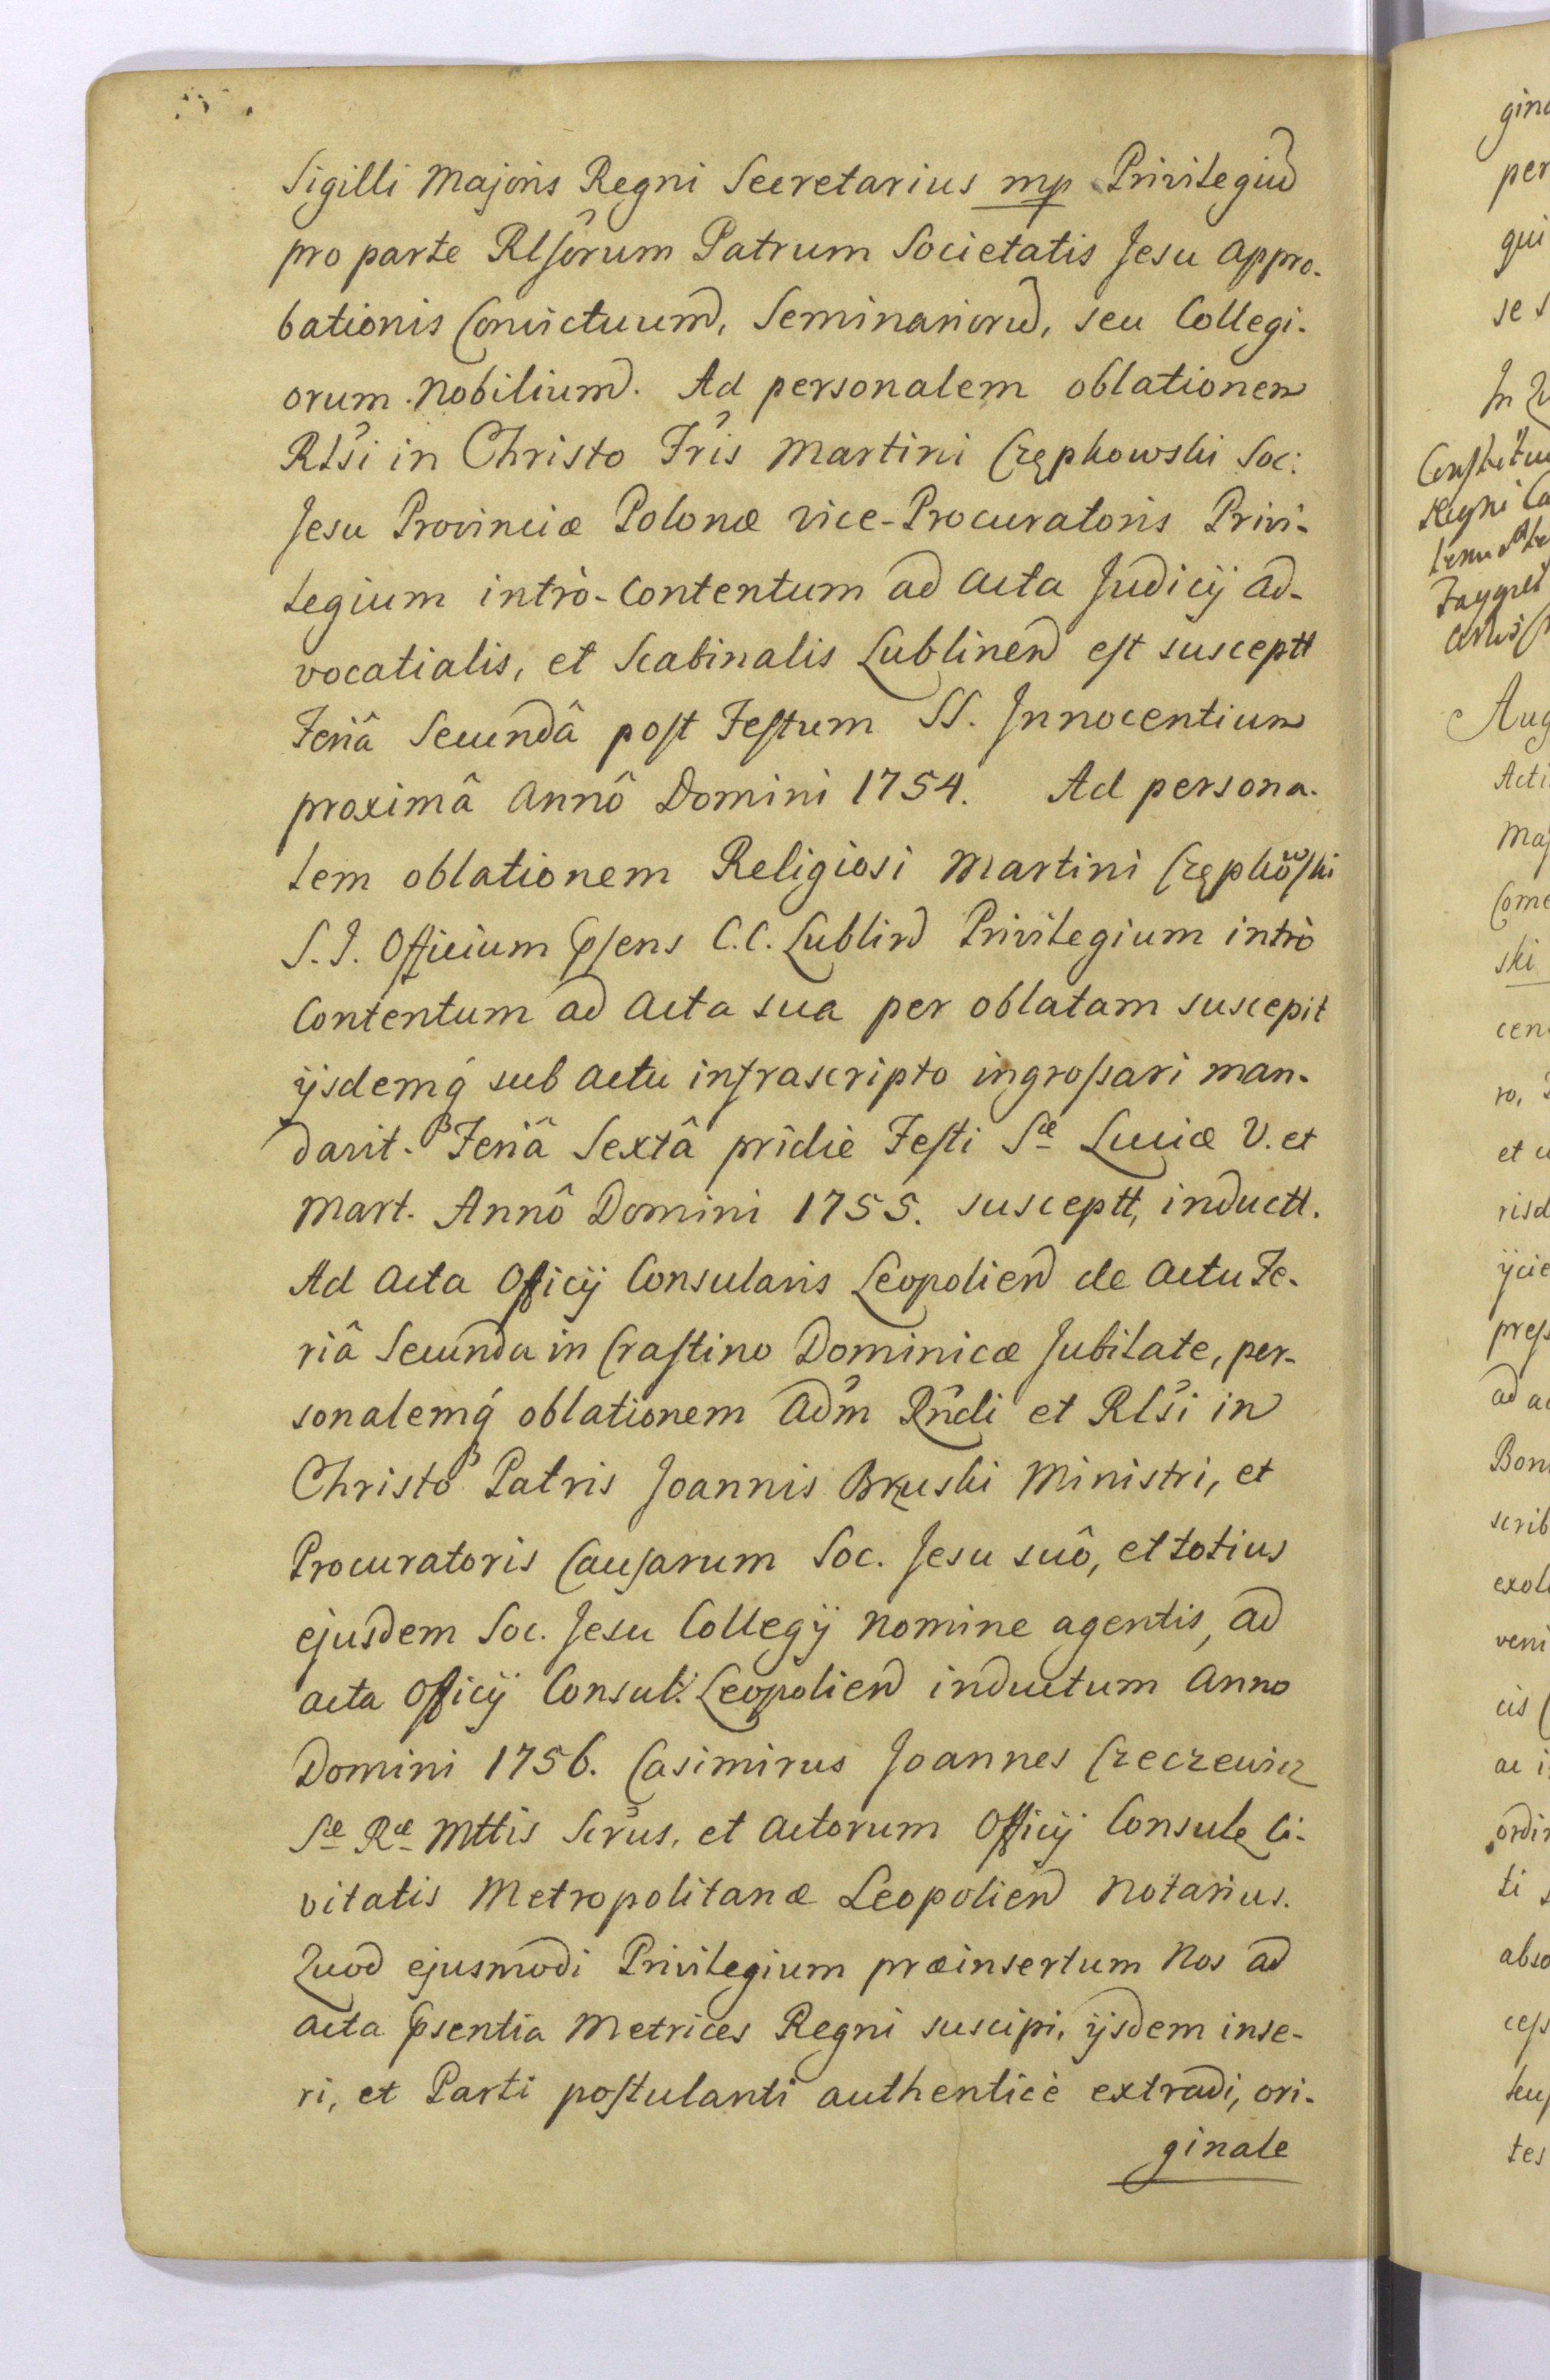 Sigilli Majoris Regni Secretarius mp Privilegiu͠
pro parte Rlsorum Patrum Societatis Jesu Appro-
bationis Convictuum, Seminarioru͠, seu Collegi-
orum Nobilium. Ad personalem oblationem
Rlsi in Christo Fris Martini Czępkowski Soc:
Jesu Provinciæ Polonæ vice-Procuratoris Privi-
legium intrò-Contentum ad Acta Judicij Ad-
vocatialis, et Scabinalis Lublinen est susceptt
Feriâ Secundâ post Festum SS. Innocentium
proximâ Annô Domini 1754. Ad persona-
lem oblationem Religiosi Martini Czępkowski
S. J. Officium Psens C.C. Lublin Privilegium intrò
Contentum ad Acta sua per oblatam suscepit
ijsdemq́ sub actu infrascripto ingrossari man-
davit. Feriâ Sextâ pridiè Festi Sæ Luciæ V. et
Mart. Annô Domini 1755. susceptt, inductt.
Ad Acta Officij Consularis Leopolien de Actu Fe-
riâ Secunda in Crastino Dominicæ Jubilate, per-
sonalemq́ oblationem Adm Rndi et Rlsi in
Christo Patris Joannis Brzuski Ministri, et
Procuratoris Causarum Soc. Jesu suô, et totius
ejusdem Soc. Jesu Collegij nomine agentis, ad
acta Officij Consul: Leopolien inductum Anno
Domini 1756. Casimirus Joannes Czeczewicz
Sæ Ræ Mttis Scrus, et Actorum Officij Consul Ci-
vitatis Metropolitanæ Leopolien Notarius.
Quod ejusmodi Privilegium præinsertum Nos ad
acta Psentia Metrices Regni suscipi, ijsdem inse-
ri, et Parti postulanti authenticè extradi, ori-
ginale